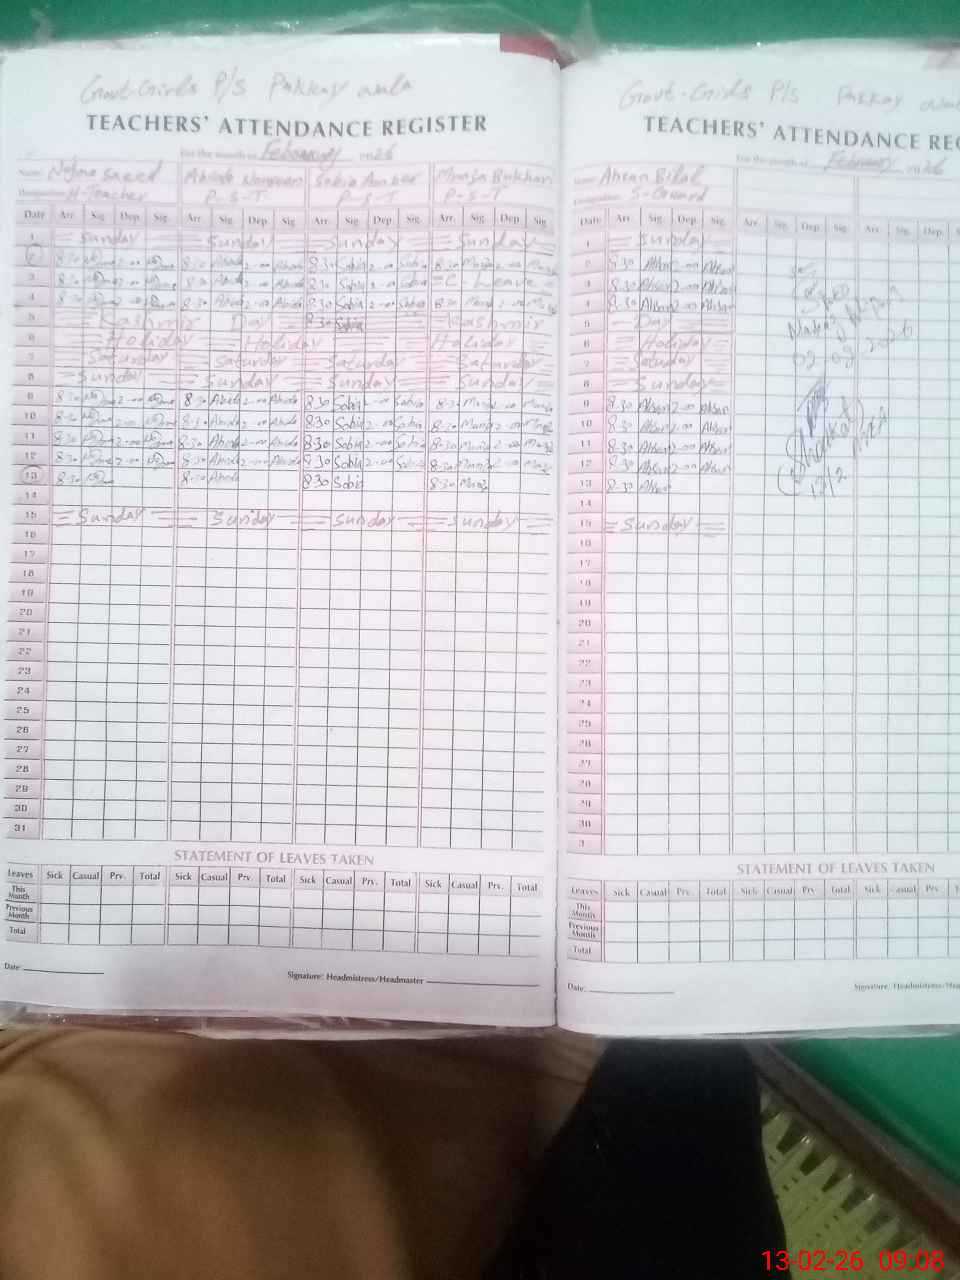 Govt-Girls P/S Pakkay wala
TEACHERS' ATTENDANCE REGISTER
For the month of February 2026
Name: Najma Saeed Abida Nasreen Sobia Amber Munza Bukhari
Designation: H-Teacher P-S-T P-S-T P-S-T
Date Arr. Sig. Dep. Sig. Arr. Sig. Dep. Sig. Arr. Sig. Dep. Sig. Arr. Sig. Dep. Sig.
1 Sunday Sunday Sunday Sunday
2 8-30 2-00 8-30 Abida 2-00 Abida 8.30 Sobia 2-00 Sobia 8-30 2-00
3 8-30 2-00 8-30 Abida 2-00 Abida 8.30 Sobia 2-00 Sobia C-Leave
4 8-30 2-00 8-30 Abida 2-00 Abida 8.30 Sobia 2-00 Sobia 8-30 2-00
5 Kashmir Day 8.30 Sobia Kashmir
6 Holiday Holiday Holiday
7 Saturday Saturday Saturday Saturday
8 Sunday Sunday Sunday Sunday
9 8-30 2-00 8-30 Abida 2-00 Abida 8.30 Sobia 2-00 Sobia 8-30 2-00
10 8-30 2-00 8-30 Abida 2-00 Abida 8.30 Sobia 2-00 Sobia 8-30 2-00
11 8-30 2-00 8-30 Abida 2-00 Abida 8.30 Sobia 2-00 Sobia 8-30 2-00
12 8-30 2-00 8-30 Abida 2-00 Abida 8.30 Sobia 2-00 Sobia 8-30 2-00
13 8-30 8-30 Abida 8.30 Sobia 8-30
14
15 Sunday Sunday Sunday Sunday
16
17
18
19
20
21
22
23
24
25
26
27
28
29
30
31
STATEMENT OF LEAVES TAKEN
Leaves Sick Casual Prv. Total Sick Casual Prv. Total Sick Casual Prv. Total Sick Casual Prv. Total
This Month
Previous Month
Total
Date:
Signature: Headmistress/Headmaster
Govt-Girls P/S Pakkay
TEACHERS' ATTENDANCE REG
For the month of February 2026
Name: Ahsan Bilal
Designation: S-Guard
Date Arr. Sig. Dep. Sig. Arr. Sig. Dep. Sig. Arr. Sig. Dep.
1 Sunday
2 8-30 Ahsan 2-00 Ahsan
3 8-30 Ahsan 2-00 Ahsan
4 8-30 Ahsan 2-00 Ahsan
5 Day
6 Holiday
7 Saturday
8 Sunday
9 8-30 Ahsan 2-00 Ahsan
10 8-30 Ahsan 2-00 Ahsan
11 8-30 Ahsan 2-00 Ahsan
12 8-30 Ahsan 2-00 Ahsan
13 8-30 Ahsan
14
15 Sunday
16
17
18
19
20
21
22
23
24
25
26
27
28
29
30
3
Shaukat
13/2
STATEMENT OF LEAVES TAKEN
Leaves Sick Casual Prv. Total Sick Casual Prv. Total Sick Casual Prv.
This Month
Previous Month
Total
Date:
Signature: Headmistress/Hea
13-02-26 09:08